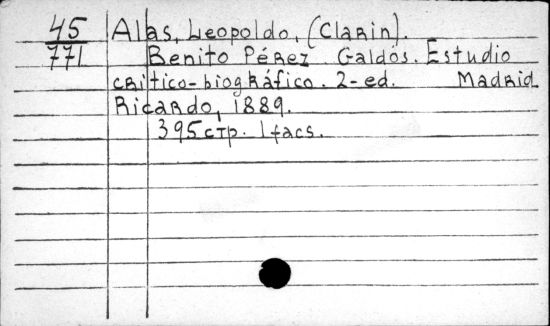 45 Alas, Leopoldo, (Clarin).
771 Benito Pérez Galdós. Estudio
crítico-biográfico. 2-ed. Madrid
Ricardo, 1889.
395 стр. 1 facs.